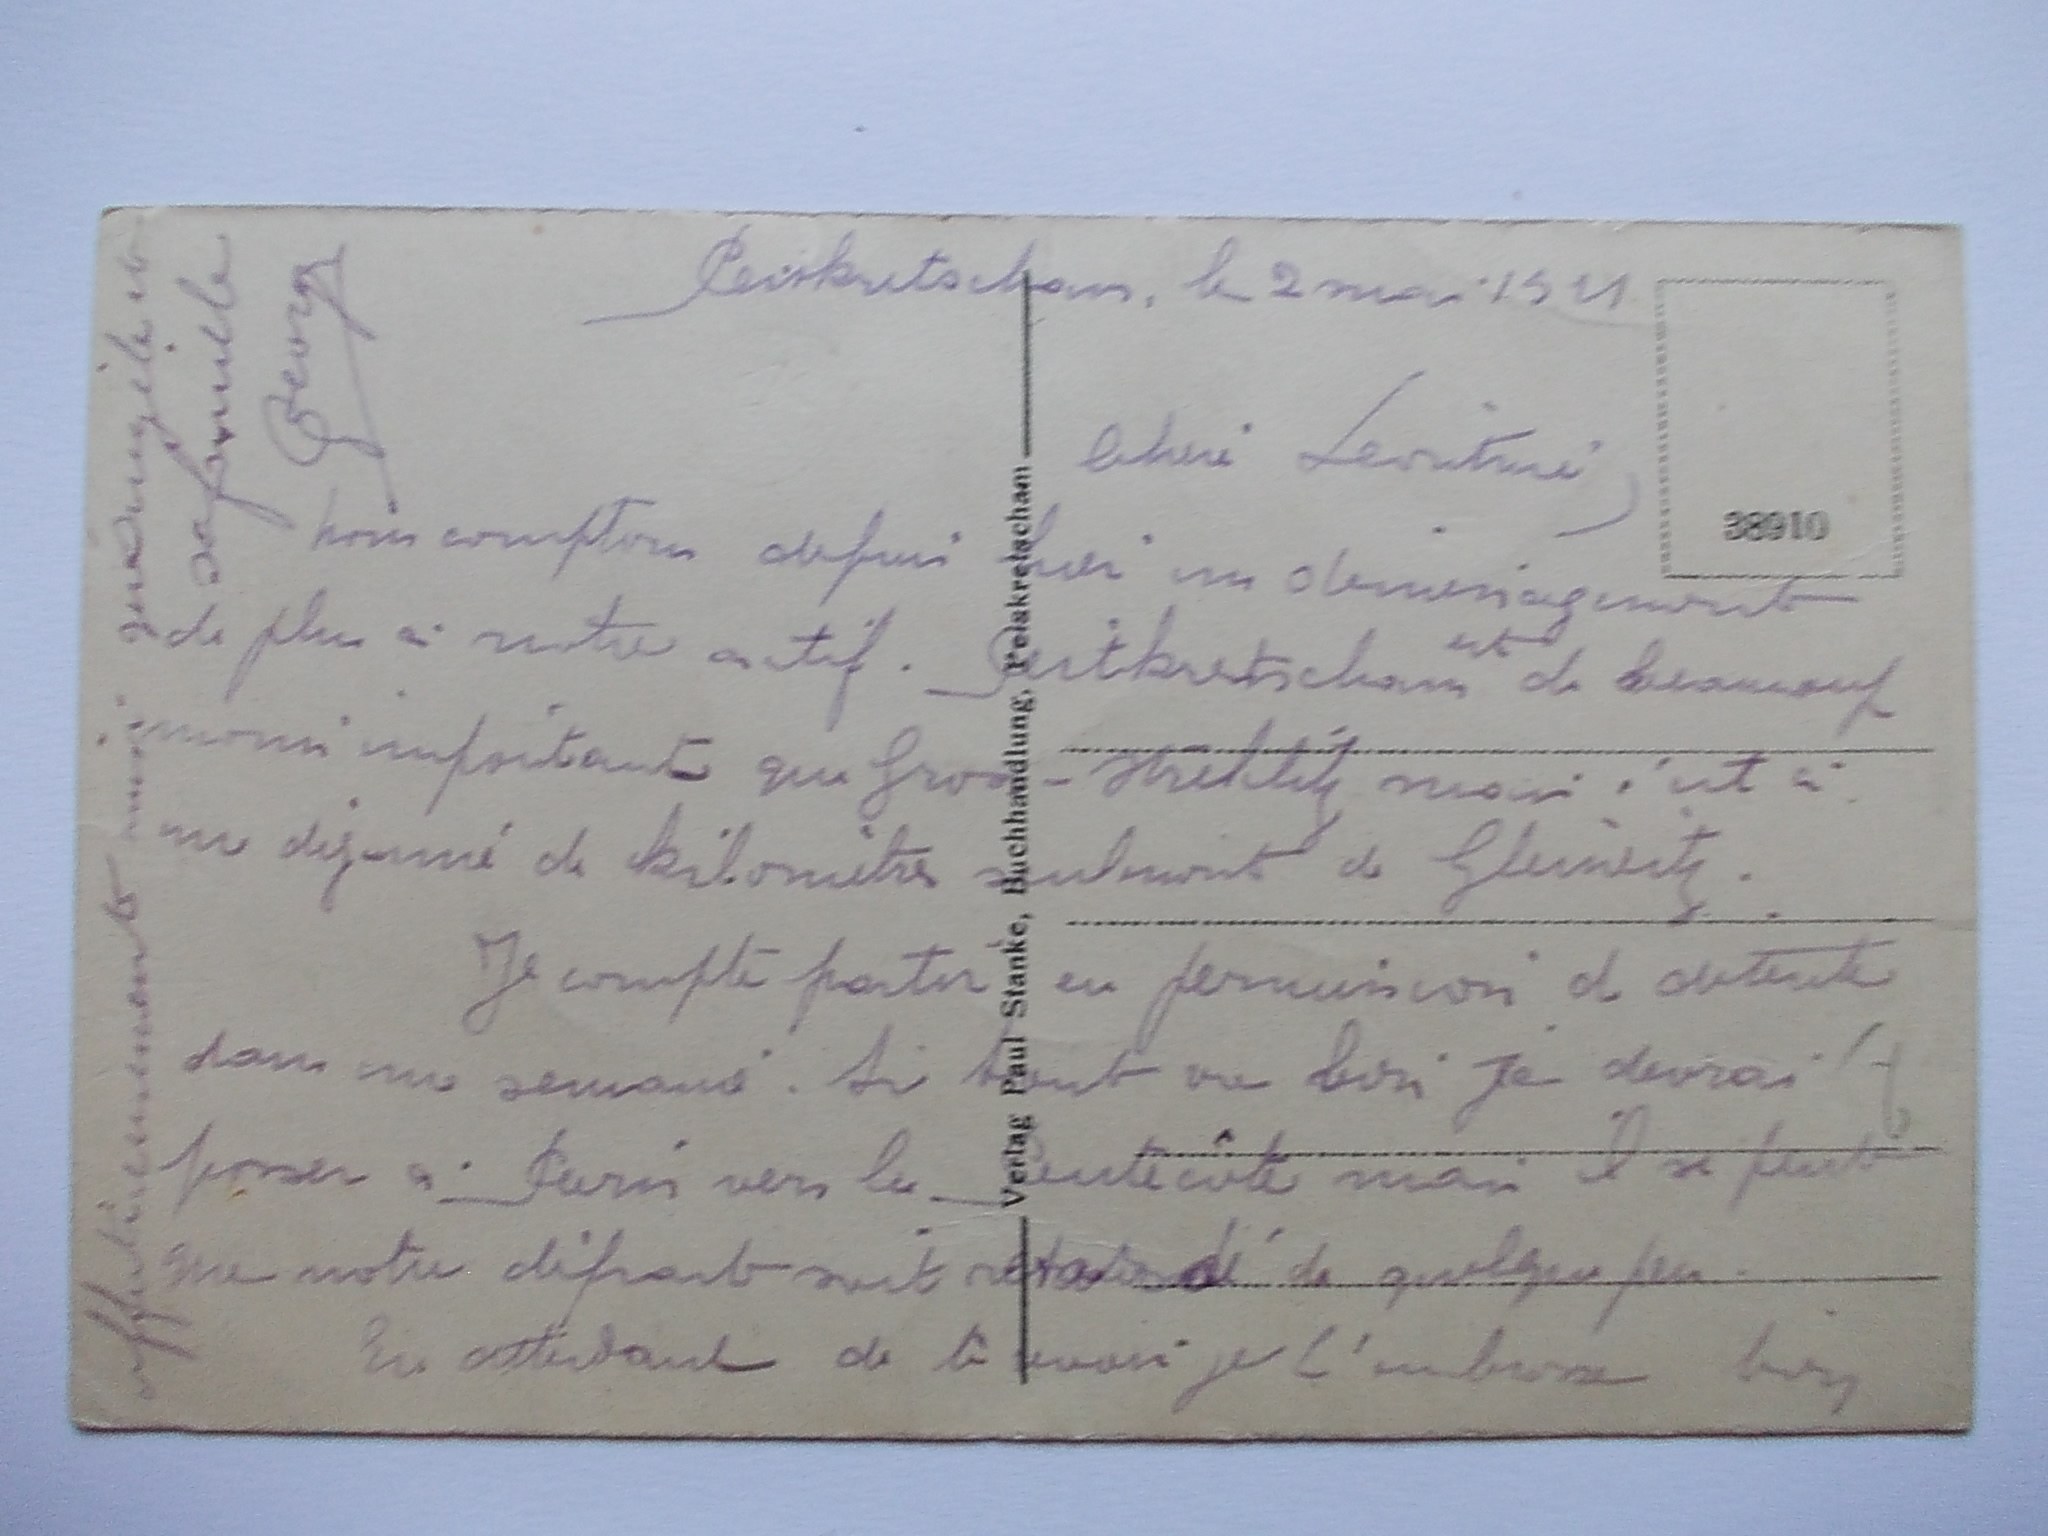 Peiskretscham, le 2 mai 1921
Chère Léontine,
Nous comptons depuis hier un déménagement
de plus à notre actif. Peiskretscham est de beaucoup
moins important que Gross-Strehlitz mais c'est à
une dizaine de kilomètres seulement de Gleiwitz.
Je compte partir en permission de détente
dans une semaine. Si tout va bien je devrai
passer à Paris vers la Pentecôte mais il se peut
que notre départ soit retardé de quelque peu.
En attendant de te revoir je t'embrasse bien
affectueusement ainsi qu'Angèle et
sa famille
Georges
Verlag Paul Stanke, Buchhandlung, Peiskretschan
38910